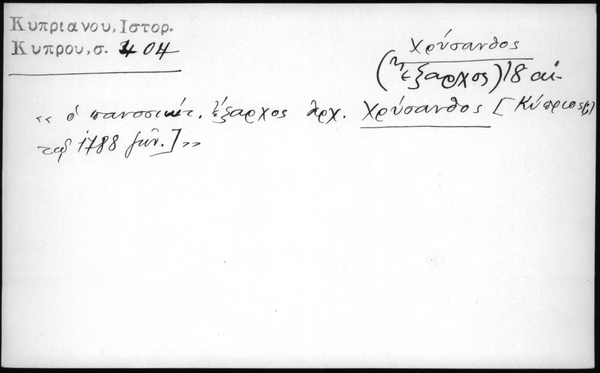 Κυπριανου, Ιστορ.
Κυπρου, σ. 404
Χρύσανθος
(Ἔξαρχος) 18 αἰ-
« ὁ πανοσιώτ. ἔξαρχος ἀρχ. Χρύσανθος [Κύπριος
1788 ]»